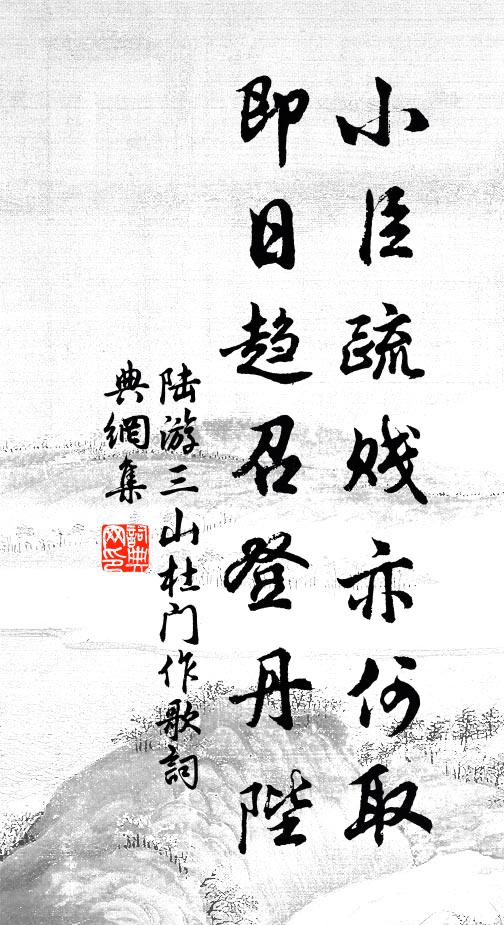 小臣疏賤亦何取
即日趋召登丹陛
陆游三山杜门作歌詞
典網集
詞典網印